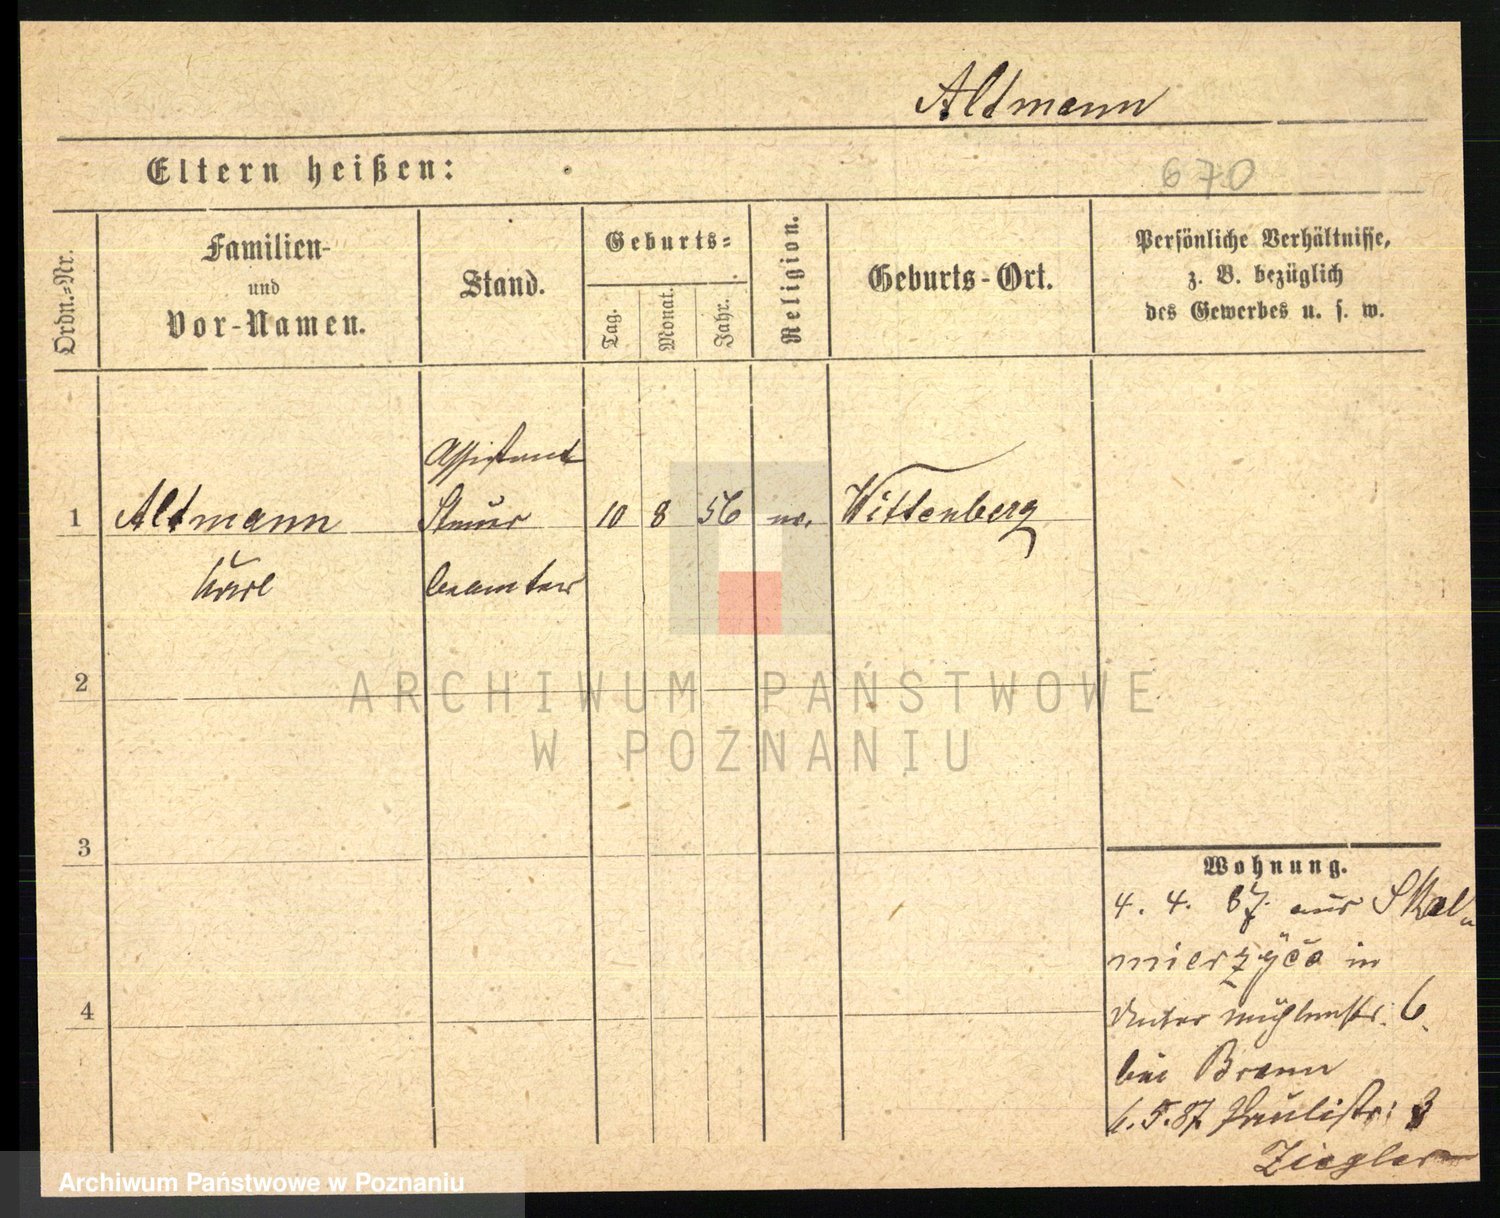 Altmann
Eltern heißen:
670
Ordn.-Nr.
Familien-
und
Vor-Namen.
Stand.
Geburts-
Tag.
Monat.
Jahr.
Religion.
Geburts-Ort.
Persönliche Verhältnisse,
z. B. bezüglich
des Gewerbes u. s. w.
Assistent
1 Altmann Steuer 10 8 56 Wittenberg
Karl beamter
2
ARCHIWUM PAŃSTWOWE
W POZNANIU
3
Wohnung.
4. 4. 87. aus Skal-
mierzyce in
4
Unter mühlenstr. 6.
bei Braun
6.5.87. Paulistr: 3
Ziegler
Archiwum Państwowe w Poznaniu